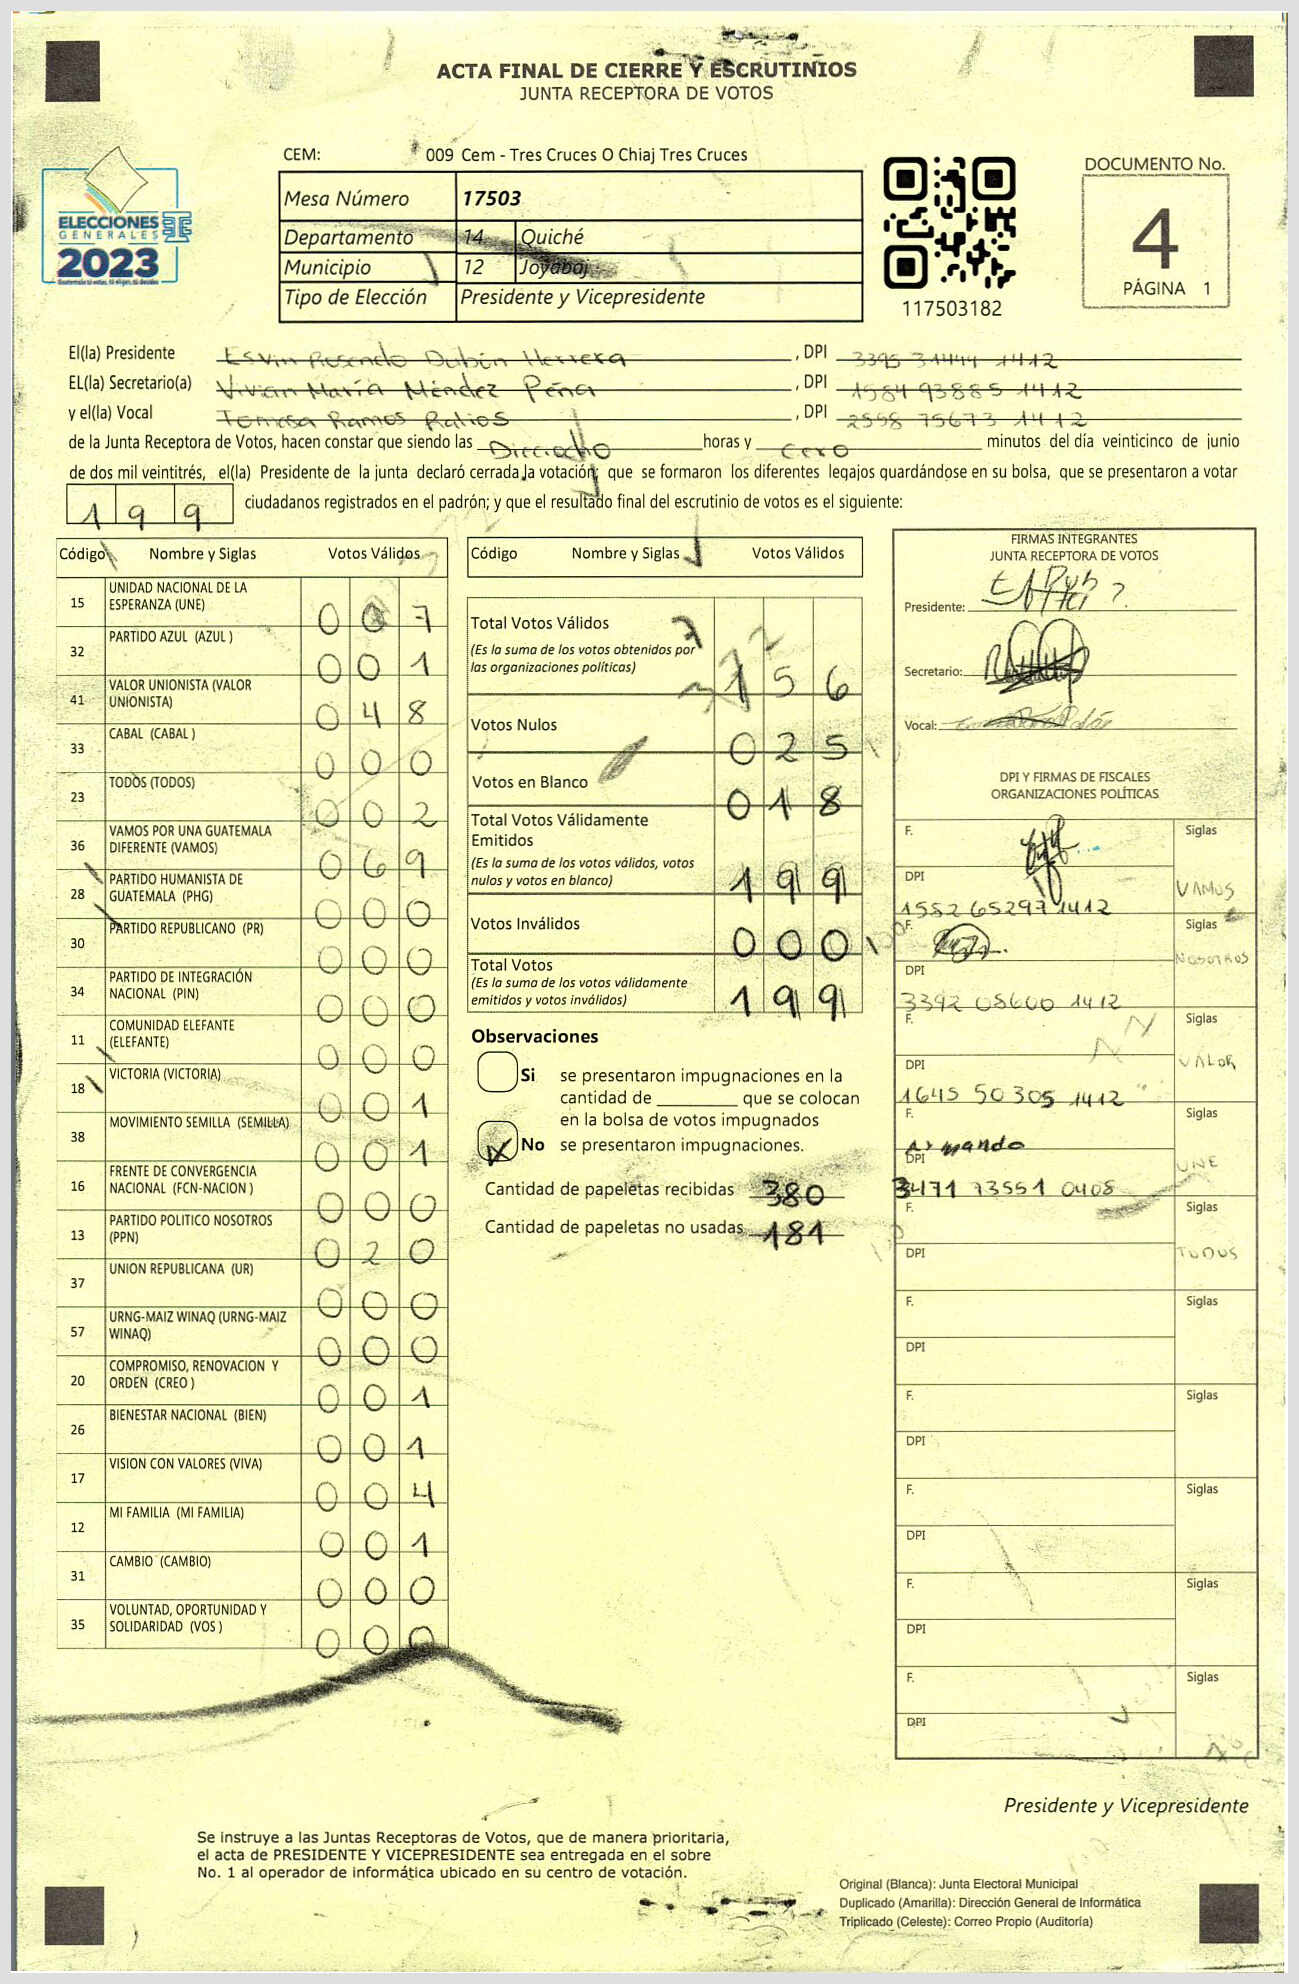 ACTA FINAL DE CIERRE Y ESCRUTINIOS
JUNTA RECEPTORA DE VOTOS
CEM: 009 Cem - Tres Cruces O Chiaj Tres Cruces
DOCUMENTO No.
4
PÁGINA 1
ELECCIONES
GENERALES
2023
Mesa Número 17503
Departamento 14 Quiché
Municipio 12 Joyabaj
Tipo de Elección Presidente y Vicepresidente
117503182
El(la) Presidente Esvin Rosendo Dubón Herrera , DPI 3395 31444 1412
EL(la) Secretario(a) Vivian María Méndez Peña , DPI 1584 93885 1412
y el(la) Vocal Tomasa Ramos , DPI 2598 75673 1412
de la Junta Receptora de Votos, hacen constar que siendo las Dieciocho horas y cero minutos del día veinticinco de junio
de dos mil veintitrés, el(la) Presidente de la junta declaró cerrada la votación; que se formaron los diferentes legajos quardándose en su bolsa, que se presentaron a votar
199 ciudadanos registrados en el padrón; y que el resultado final del escrutinio de votos es el siguiente:
Código Nombre y Siglas Votos Válidos
15 UNIDAD NACIONAL DE LA
ESPERANZA (UNE) 0 0 7
32 PARTIDO AZUL (AZUL ) 0 0 1
41 VALOR UNIONISTA (VALOR
UNIONISTA) 0 4 8
33 CABAL (CABAL ) 0 0 0
23 TODOS (TODOS) 0 0 2
36 VAMOS POR UNA GUATEMALA
DIFERENTE (VAMOS) 0 6 9
28 PARTIDO HUMANISTA DE
GUATEMALA (PHG) 0 0 0
30 PARTIDO REPUBLICANO (PR) 0 0 0
34 PARTIDO DE INTEGRACIÓN
NACIONAL (PIN) 0 0 0
11 COMUNIDAD ELEFANTE
(ELEFANTE) 0 0 0
18 VICTORIA (VICTORIA) 0 0 1
38 MOVIMIENTO SEMILLA (SEMILLA) 0 0 1
16 FRENTE DE CONVERGENCIA
NACIONAL (FCN-NACION ) 0 0 0
13 PARTIDO POLITICO NOSOTROS
(PPN) 0 2 0
37 UNION REPUBLICANA (UR) 0 0 0
57 URNG-MAIZ WINAQ (URNG-MAIZ
WINAQ) 0 0 0
20 COMPROMISO, RENOVACION Y
ORDEN (CREO ) 0 0 1
26 BIENESTAR NACIONAL (BIEN) 0 0 1
17 VISION CON VALORES (VIVA) 0 0 4
12 MI FAMILIA (MI FAMILIA) 0 0 1
31 CAMBIO (CAMBIO) 0 0 0
35 VOLUNTAD, OPORTUNIDAD Y
SOLIDARIDAD (VOS ) 0 0 0
Código Nombre y Siglas Votos Válidos
Total Votos Válidos 1 5 6
(Es la suma de los votos obtenidos por
las organizaciones políticas)
Votos Nulos 0 2 5
Votos en Blanco 0 1 8
Total Votos Válidamente
Emitidos 1 9 9
(Es la suma de los votos válidos, votos
nulos y votos en blanco)
Votos Inválidos 0 0 0
Total Votos 1 9 9
(Es la suma de los votos válidamente
emitidos y votos inválidos)
Observaciones
Si se presentaron impugnaciones en la
cantidad de ________ que se colocan
en la bolsa de votos impugnados
X No se presentaron impugnaciones.
Cantidad de papeletas recibidas 380
Cantidad de papeletas no usadas 181
FIRMAS INTEGRANTES
JUNTA RECEPTORA DE VOTOS
Presidente:
Secretario:
Vocal:
DPI Y FIRMAS DE FISCALES
ORGANIZACIONES POLÍTICAS
F. Siglas
DPI VAMOS
1552 65297 1412
F. Siglas
DPI NOSOTROS
3392 08600 1412
F. Siglas
DPI VALOR
1645 50305 1412
F. Armando
DPI UNE
3471 73551 0408
F. Siglas
DPI TODOS
F. Siglas
DPI
F. Siglas
DPI
F. Siglas
DPI
F. Siglas
DPI
F. Siglas
DPI
Presidente y Vicepresidente
Se instruye a las Juntas Receptoras de Votos, que de manera prioritaria,
el acta de PRESIDENTE Y VICEPRESIDENTE sea entregada en el sobre
No. 1 al operador de informática ubicado en su centro de votación.
Original (Blanca): Junta Electoral Municipal
Duplicado (Amarilla): Dirección General de Informática
Triplicado (Celeste): Correo Propio (Auditoría)